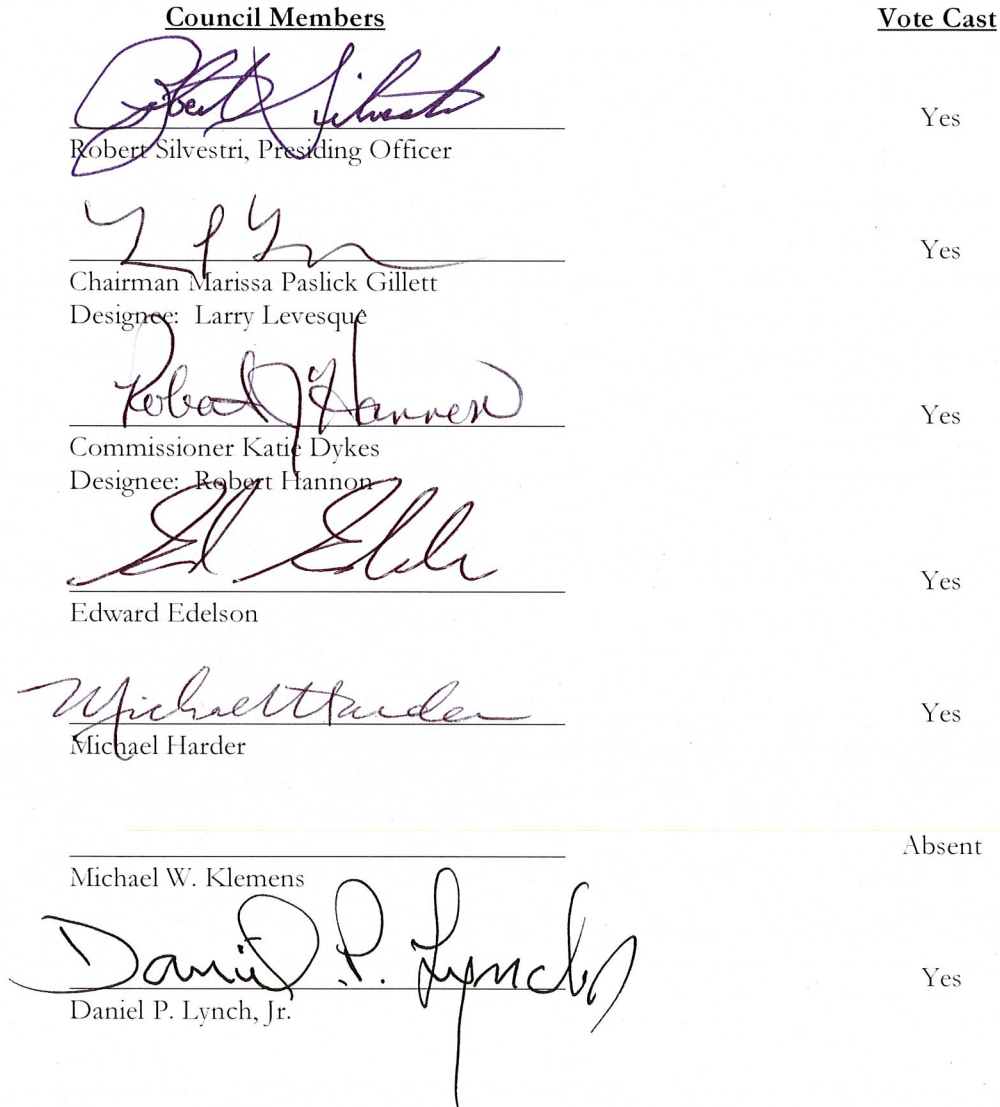 Council Members Vote Cast
Robert Silvestri Yes
Robert Silvestri, Presiding Officer
Yes
Chairman Marissa Paslick Gillett
Designee: Larry Levesque
Robert J Hannon Yes
Commissioner Katie Dykes
Designee: Robert Hannon
Ed Edelson Yes
Edward Edelson
Michael Harder Yes
Michael Harder
Absent
Michael W. Klemens
Daniel P. Lynch Jr Yes
Daniel P. Lynch, Jr.